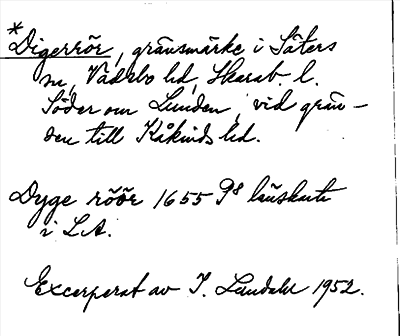 *Digerrör, gränsmärke i Säters
sn, Vadsbo hd, Skarab. l.
Söder om Lunden, vid grän-
sen till Kåkinds hd.
Dyge röör 1655 P8 länskarta
i L.A.
Excerperat av I. Lundahl 1952.